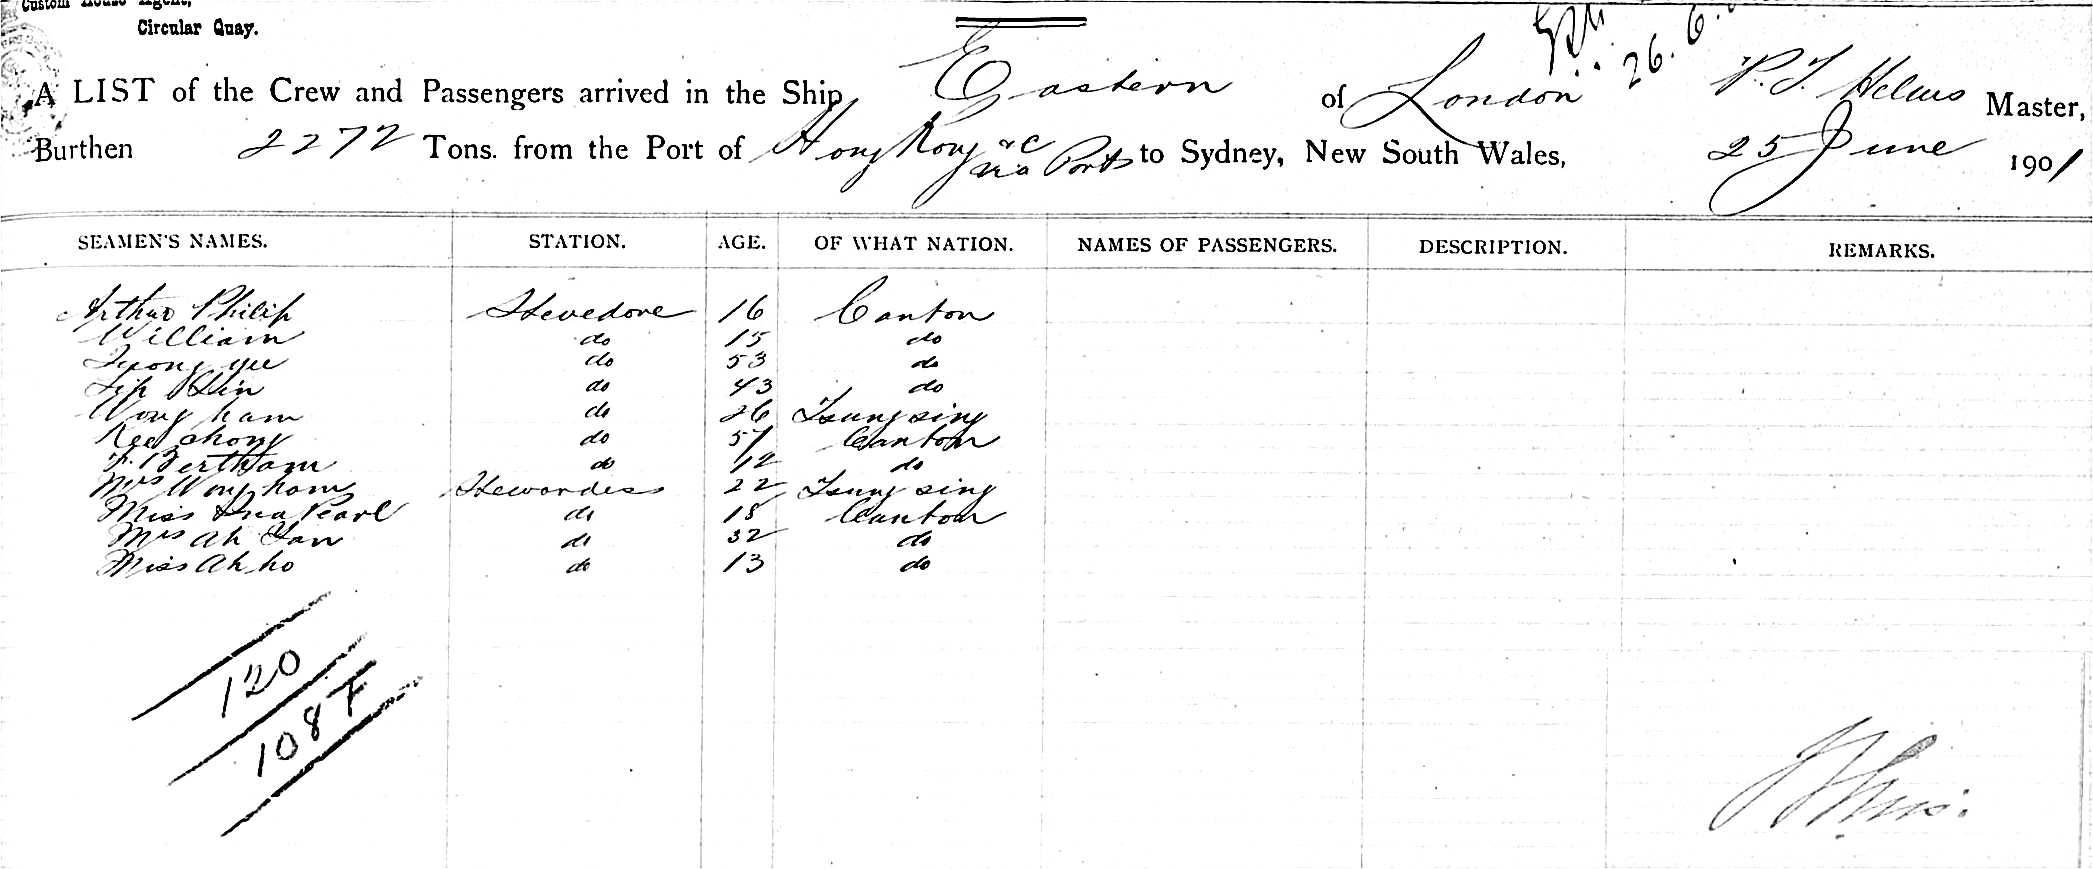 Custom House Agent,
Circular Quay.
26. 6.
A LIST of the Crew and Passengers arrived in the Ship Eastern of London P. T. Helms Master,
Burthen 2272 Tons. from the Port of Hong Kong &c via Ports to Sydney, New South Wales, 25 June 1901
SEAMEN'S NAMES. STATION. AGE. OF WHAT NATION. NAMES OF PASSENGERS. DESCRIPTION. REMARKS.
Arthur Philip Stevedore 16 Canton
William do 15 do
yee do 53 do
do 43 do
Wong ham do 26 Tsung sing
Kee chong do 57 Canton
F. Bertham do 12 do
Mrs Wong ham Stewardess 22 Tsung sing
Miss Ina Pearl do 18 Canton
Mrs Ah Yan do 32 do
Miss Ah ho do 13 do
120
108 F